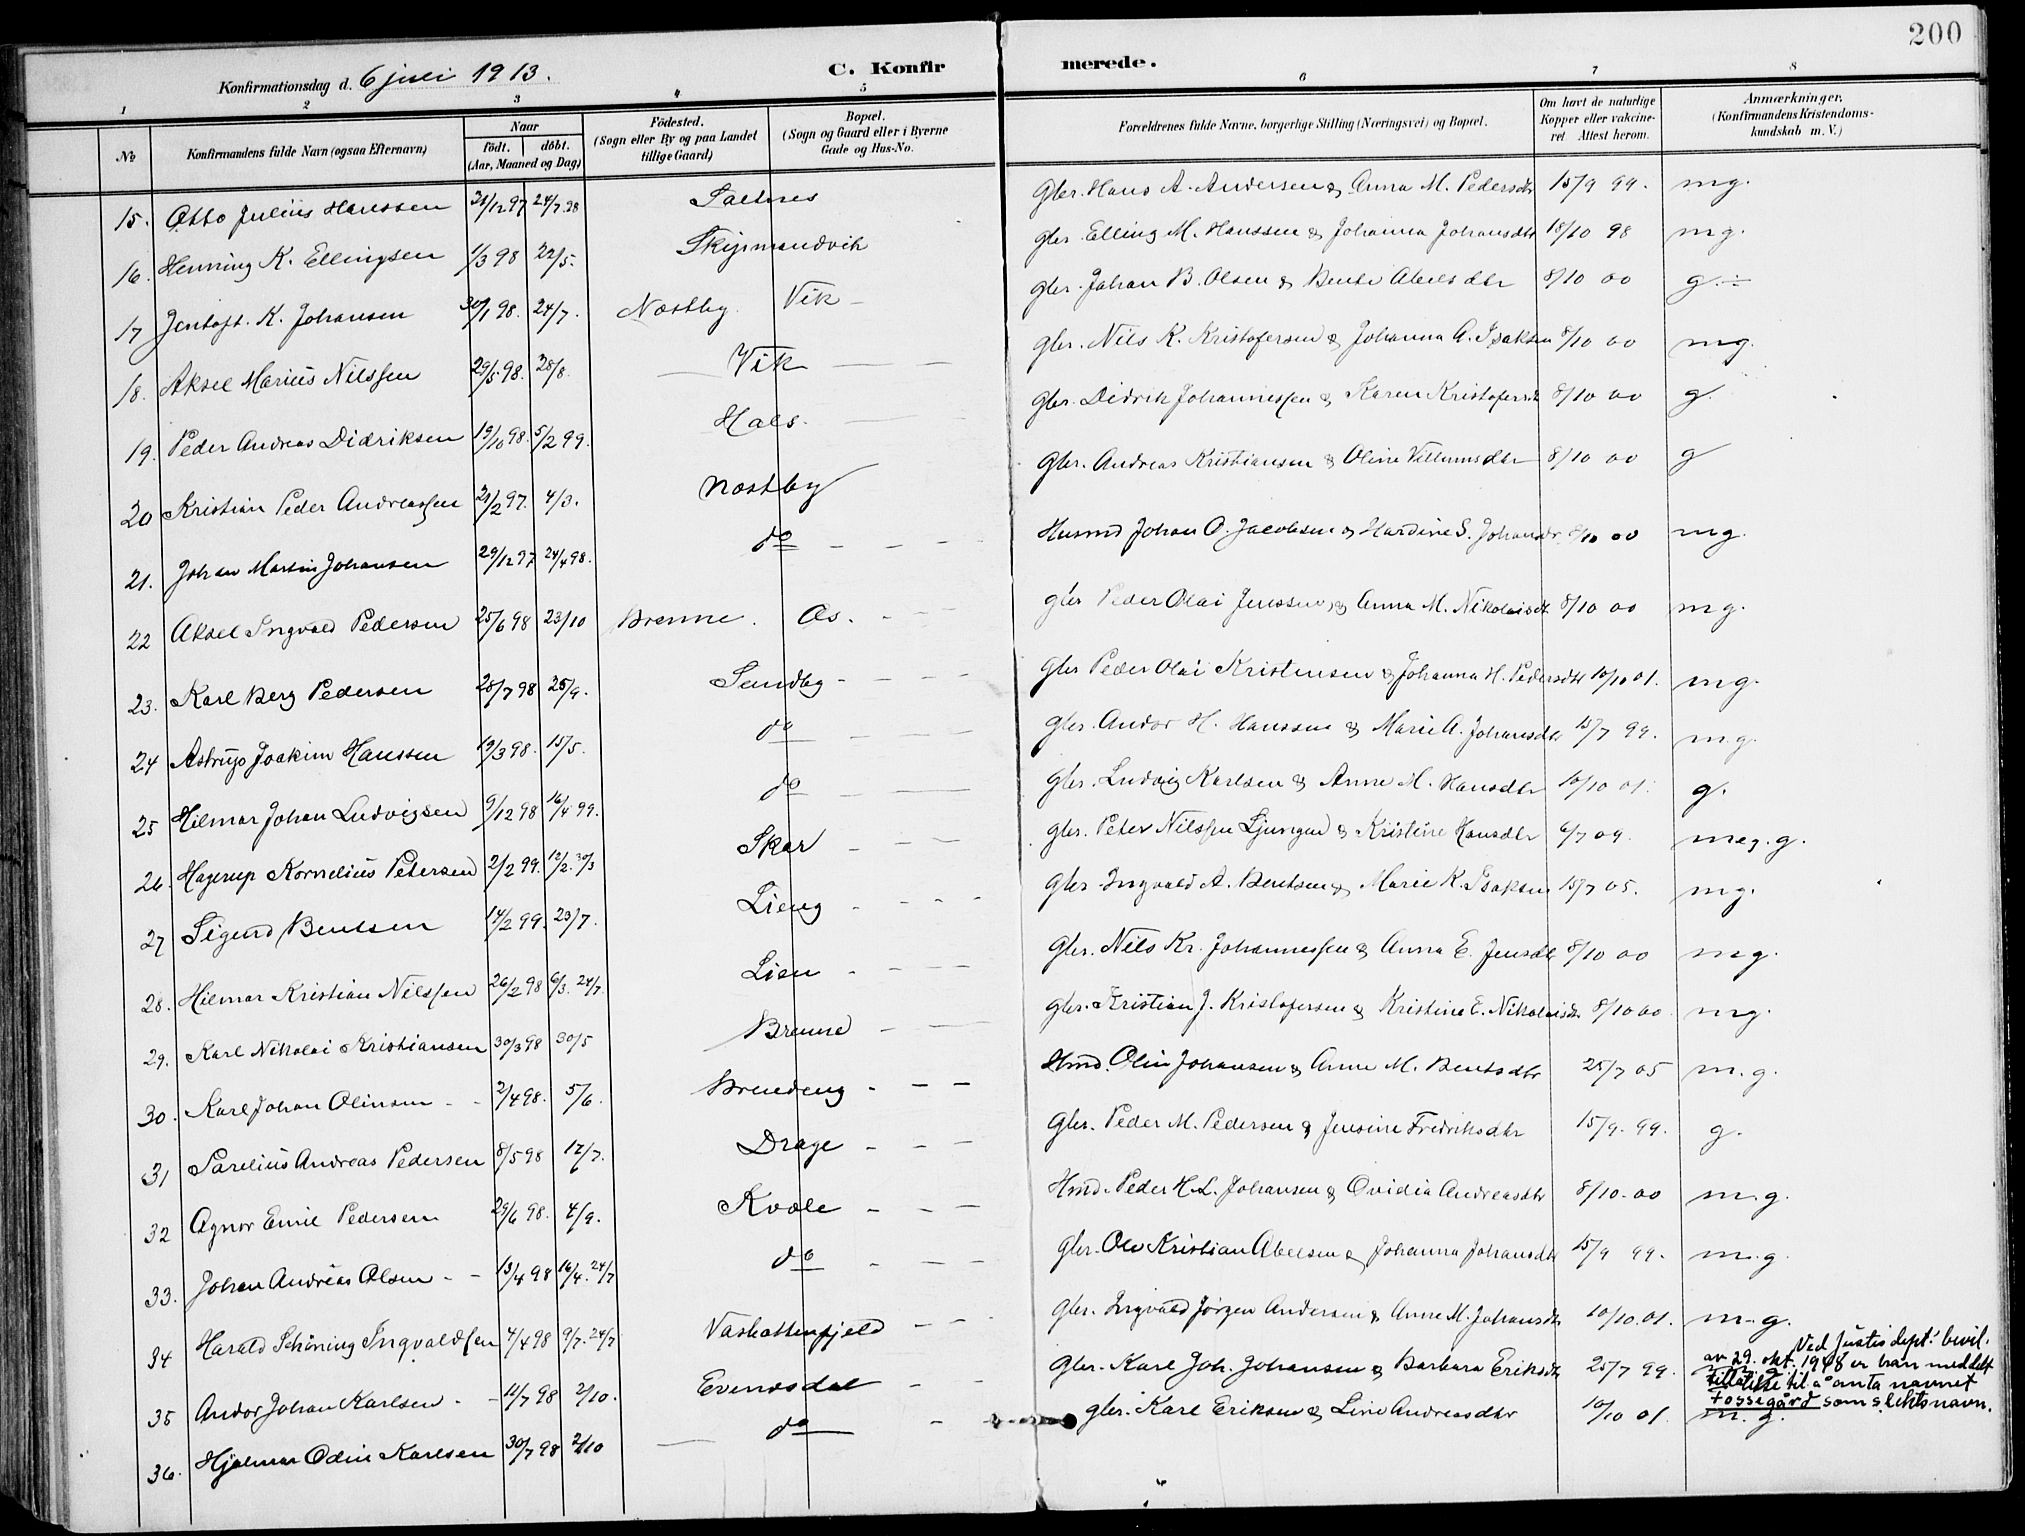 200
Konfirmationsdag d. 6 juli 1913.
C. Konfirmerede.
1 2 3 4 5 6 7 8
No
Konfirmandens fulde Navn (ogsaa Efternavn)
Naar
født. døbt.
(Aar, Maaned og Dag)
Fødested.
(Sogn eller By og paa Landet
tillige Gaard)
Bopæl.
(Sogn og Gaard eller i Byerne
Gade og Hus-No.
Forældrenes fulde Navne, borgerlige Stilling (Næringsvei) og Bopæl.
Om havt de naturlige
Kopper eller vakcine-
ret Attest herom.
Anmærkninger.
(Konfirmandens Kristendoms-
kundskab m. V.)
15. Otto Julius Hanssen 31/12 97 24/7.98 Saltnes Gbr. Hans A. Andersen & Anna M. Pedersdtr 15/9 99. mg.
16. Henning K. Ellingsen 1/3 98 22/5. Skjismandvik Gbr. Elling M. Hanssen & Johanna Johansdtr 18/10 98 mg.
17 Jentoft. K. Johansen 30/1 98. 24/7. Næstby. Vik Gbr. Johan B. Olsen & Bente Abelsdtr 8/10 00 g.÷
18. Aksel Marius Nilssen 29/5 98. 28/8. Vik Gbr. Nils K. Kristofersen & Johanna A. Isaksen 8/10 00 mg.
19. Peder Andreas Didriksen 19/10 98. 5/2 99. Hals. Gbr. Didrik Johannessen & Karen Kristofersdtr 8/10 00 g.
20 Kristian Peder Andreassen 21/2 97. 4/3. Næstby Gbr. Andreas Kristiansen & Oline Villumsdtr 8/10 00 g
21. Johan Martin Johansen 29/12 97 24/4 98. do Husmd Johan O. Jacobsen & Hardine S. Johansdtr 8/10 00 mg.
22 Aksel Ingvald Pedersen 25/6 98 23/10 Brenne. Os. Gbr Peder Olai Jenssen & Anna M. Nikolaisdtr 8/10 00 mg.
23. Karl Berg Pedersen 28/7 98 25/9. Sundby Gbr Peder Olai Kristensen & Johanna H. Pedersdtr 10/10 01. mg.
24 Astrup Joakim Hanssen 19/3 98. 15/5. do Gbr. Andor H. Hanssen & Marie A. Johansdtr 15/7 99. mg.
25 Hilmar Johan Ludvigsen 9/12 98 16/4 99. do Gbr. Ludvig Karlsen & Anne M. Hansdtr 10/10 01. g.
26. Hagerup Kornelius Petersen 2/2 99. 12/2. 30/3 Skar Gbr. Peter Nilssen Ljungen & Kristine Hansdtr 6/7 09. meg. g.
27 Sigurd Bentsen 14/2 99. 23/7. Lieng Gbr. Ingvald A. Bentsen & Marie K. Isaksen 15/7 05. mg.
28. Hilmar Kristian Nilssen 26/2 98 6/3. 24/7. Lien Gbr. Nils Kr. Johannessen & Anna E. Jensdtr 8/10 00 mg.
29. Karl Nikolai Kristiansen 30/3 98 30/5 Brenne Gbr. Kristian J. Kristofersen & Kristine E. Nikolaisdtr. 8/10 00 mg.
30. Karl Johan Olinsen 2/4 98. 5/6. Brendeng Hmd. Olin Johansen & Anne M. Bentsdtr 25/7 05 m. g.
31 Parelius Andreas Pedersen 8/5 98 17/7. Drage Gbr. Peder M. Pedersen & Jensine Fredriksdtr 15/9. 99. g.
32 Agnar Emil Pedersen 29/6 98. 4/9. Kvale Hmd. Peder H. L. Johansen & Ovidia Andreasdtr 8/10. 00 m. g.
33. Johan Andreas Olsen 13/4 98 16/4. 24/7 do Gbr. Ole Kristian Abelsen & Johanna Johansdtr 15/9 99. m. g.
34 Harald Schöning Ingvaldsen 4/4 98 9/7. 24/7 Vashattenfjeld Gbr. Ingvald Jørgen Andersen & Anne M. Johansdtr 10/10. 01. m. g.
35 Andor Johan Karlsen 11/7 98 2/10. Evendsdal Gbr. Karl Joh. Johansen & Barbara Eriksdtr 25/7 99.
Ved Justisdept. bevil.
av 29. okt. 1948 er han meddelt
tillatelse til å anta navnet
Fossegård som slektsnavn.
36. Hjalmar Odin Karlsen 30/7 98 2/10 do Gbr. Karl Eriksen & Line Andreasdtr 10/10 01. m. g.